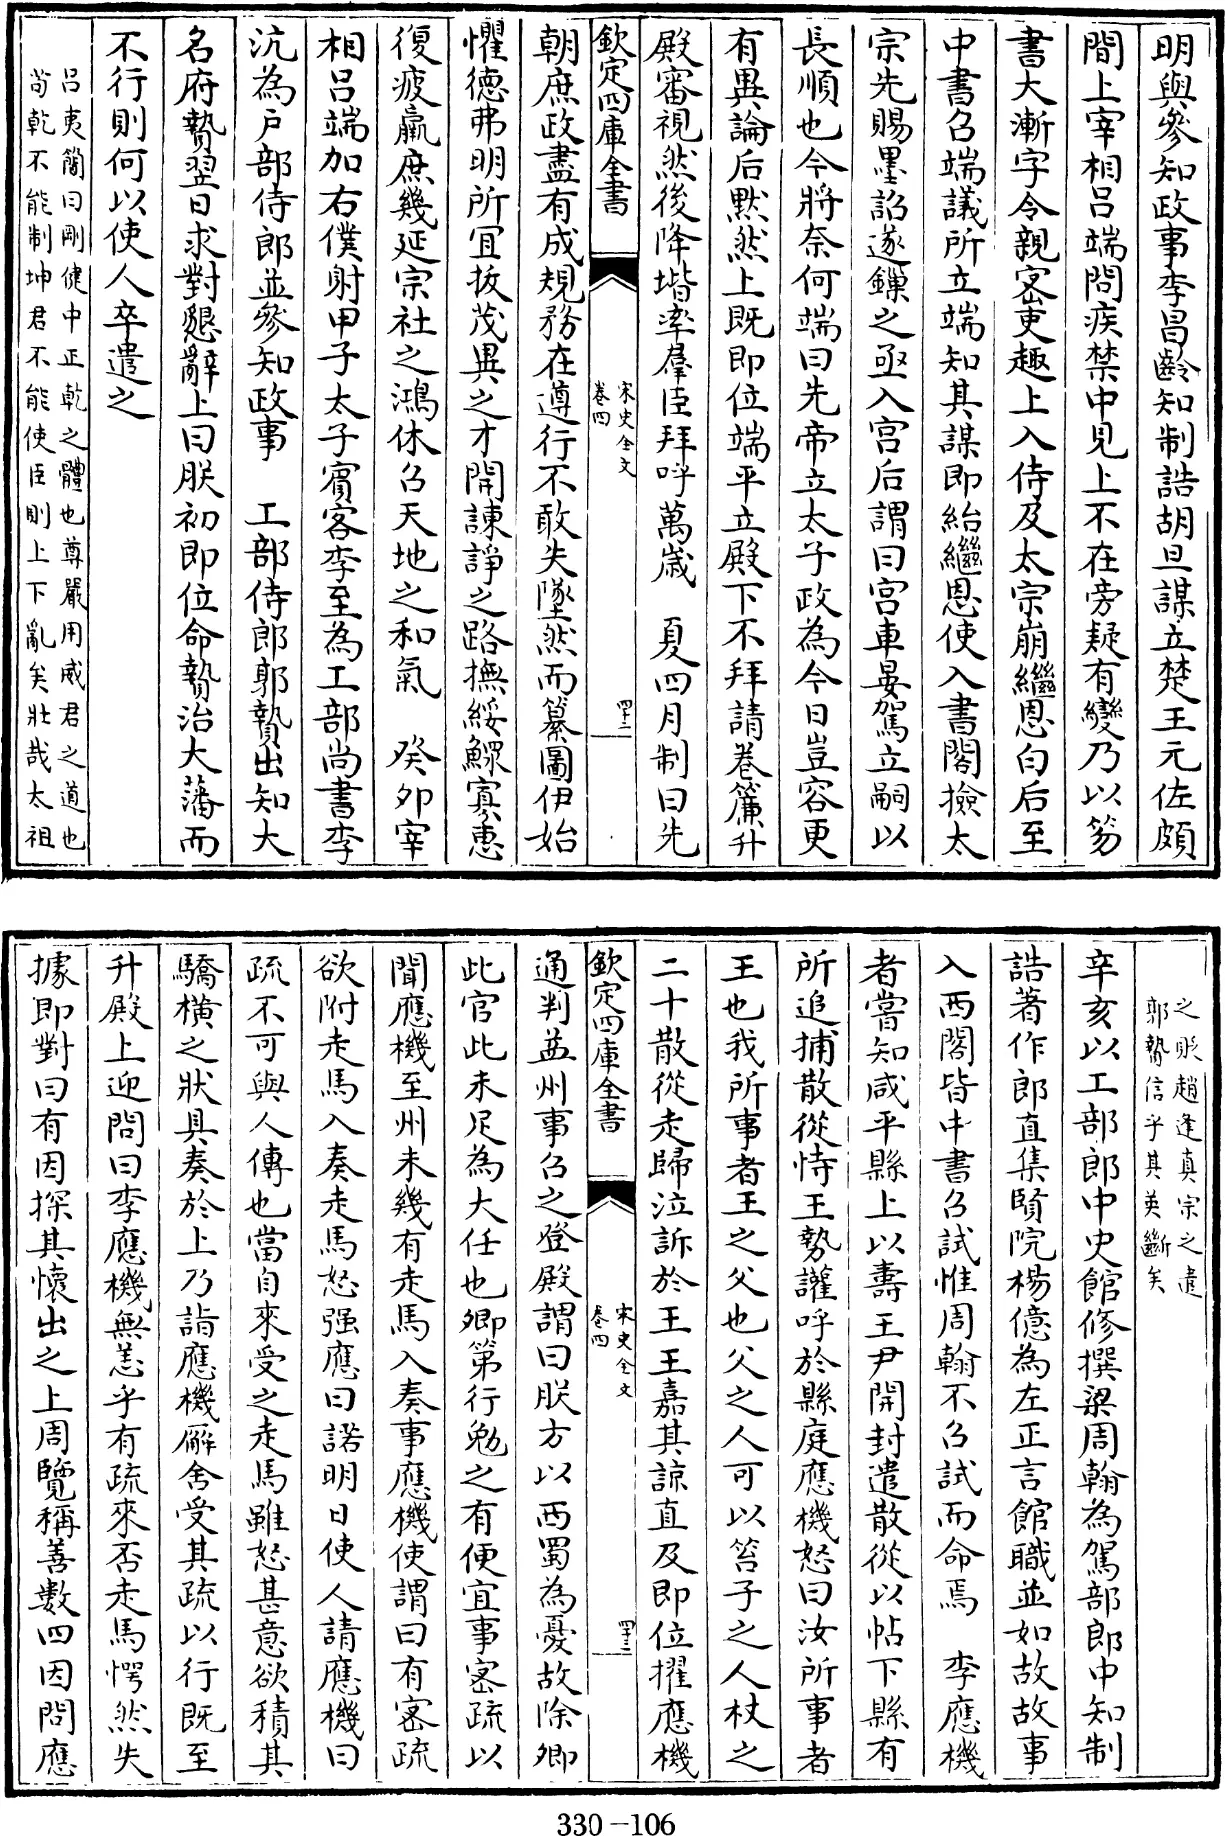 明與參知政事李昌齡知制誥胡旦謀立楚王元佐頗
間上宰相呂端問疾禁中見上不在旁疑有變乃以笏
書大漸字令親宻吏趣上入侍及太宗崩繼恩白后至
中書召端議所立端知其謀即紿繼恩使入書閣撿太
宗先賜墨詔遂鏁之亟入宫后謂曰宫車晏駕立嗣以
長順也今將奈何端曰先帝立太子政為今日豈容更
有異論后黙然上既即位端平立殿下不拜請巻簾升
殿審視然後降堦率羣臣拜呼萬歳　夏四月制曰先
欽定四庫全書
宋史全文
巻四
四十二
朝庶政盡有成規務在遵行不敢失墜然而纂圖伊始
懼德弗明所冝抜茂異之才開諌諍之路撫綏鰥寡惠
復疲羸庶幾延宗社之鴻休召天地之和氣　癸夘宰
相呂端加右僕射甲子太子賓客李至為工部尚書李
沆為户部侍郎並參知政事　工部侍郎郭贄出知大
名府贄翌日求對懇辭上曰朕初即位命贄治大藩而
不行則何以使人卒遣之
呂夷簡曰剛健中正乾之體也尊嚴用威君之道也
茍乾不能制坤君不能使臣則上下亂矣壯哉太祖
之貶趙逢真宗之遣
郭贄信乎其英斷矣
辛亥以工部郎中史館修撰梁周翰為駕部郎中知制
誥著作郎直集賢院楊億為左正言館職並如故故事
入西閣皆中書召試惟周翰不召試而命焉　李應機
者嘗知咸平縣上以壽王尹開封遣散從以帖下縣有
所追捕散從恃王勢讙呼於縣庭應機怒曰汝所事者
王也我所事者王之父也父之人可以笞子之人杖之
二十散從走歸泣訴於王王嘉其諒直及即位擢應機
欽定四庫全書
宋史全文
巻四
四十三
通判益州事召之登殿謂曰朕方以西蜀為憂故除卿
此官此未足為大任也卿第行勉之有便宜事宻疏以
聞應機至州未幾有走馬入奏事應機使謂曰有宻疏
欲附走馬入奏走馬怒强應曰諾明日使人請應機曰
疏不可與人傳也當自來受之走馬雖怒甚意欲積其
驕橫之狀具奏於上乃詣應機廨舍受其疏以行既至
升殿上迎問曰李應機無恙乎有疏來否走馬愕然失
據即對曰有因探其懷出之上周覽稱善數四因問應
330-106